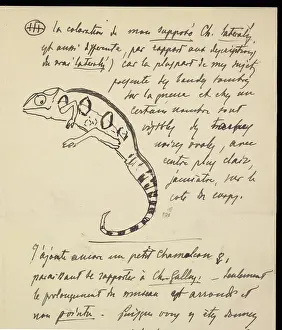 La coloration de mon supposé Ch. lateralis,
est aussi differente, par rapport aux descriptions
du vrai lateralis) car la plupart de mes sujets
presente des bandes sombres
sur la queue et chez un
certain nombre sont
visibles de
noires ovales, avec
centre plus clair,
sur le
coté du corps.
J'ajoute aussi un petit Chamaeleon ♀,
paraissant de rapporter à Ch. Gallus. - seulement
le prolongement du museau est arrondi et
non pointu. - Puisque vous y etes